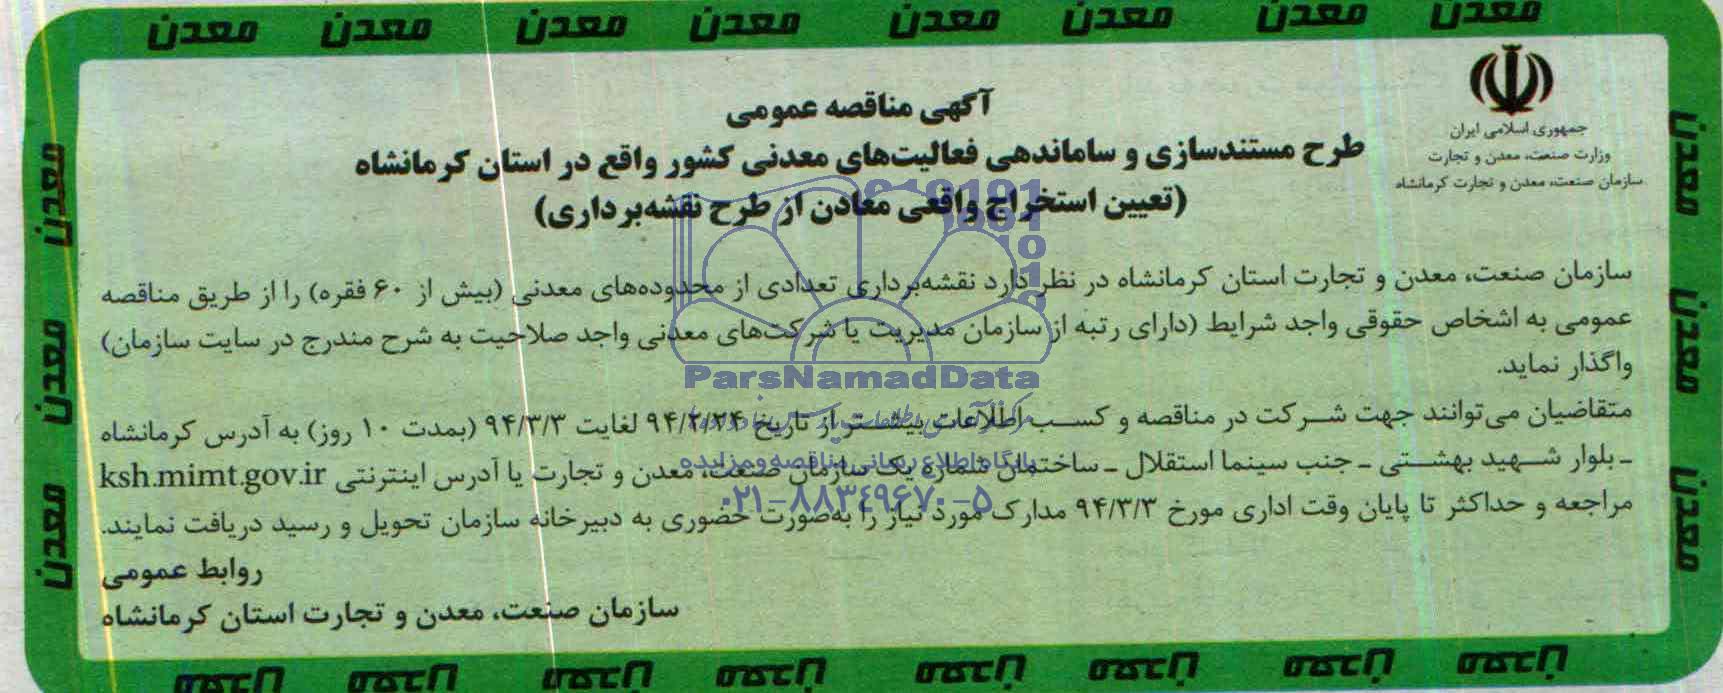 معدن معدن معدن معدن معدن معدن معدن معدن
جمهوری اسلامی ایران
وزارت صنعت، معدن و تجارت
سازمان صنعت، معدن و تجارت کرمانشاه
آگهی مناقصه عمومی
طرح مستندسازی و ساماندهی فعالیت‌های معدنی کشور واقع در استان کرمانشاه
(تعیین استخراج واقعی معادن از طرح نقشه‌برداری)
سازمان صنعت، معدن و تجارت استان کرمانشاه در نظر دارد نقشه‌برداری تعدادی از محدوده‌های معدنی (بیش از ۶۰ فقره) را از طریق مناقصه
عمومی به اشخاص حقوقی واجد شرایط (دارای رتبه از سازمان مدیریت یا شرکت‌های معدنی واجد صلاحیت به شرح مندرج در سایت سازمان)
واگذار نماید.
متقاضیان می‌توانند جهت شرکت در مناقصه و کسب اطلاعات بیشتر از تاریخ ۹۴/۲/۲۴ لغایت ۹۴/۳/۳ (بمدت ۱۰ روز) به آدرس کرمانشاه
ـ بلوار شهید بهشتی ـ جنب سینما استقلال ـ ساختمان شماره یک سازمان صنعت، معدن و تجارت یا آدرس اینترنتی ksh.mimt.gov.ir
مراجعه و حداکثر تا پایان وقت اداری مورخ ۹۴/۳/۳ مدارک مورد نیاز را به‌صورت حضوری به دبیرخانه سازمان تحویل و رسید دریافت نمایند.
روابط عمومی
سازمان صنعت، معدن و تجارت استان کرمانشاه
ParsNamadData
پایگاه اطلاع رسانی مناقصه و مزایده
۰۲۱-۸۸۳۴۹۶۷۰-۵
معدن
معدن
معدن
معدن
معدن
معدن
معدن معدن معدن معدن معدن معدن معدن معدن